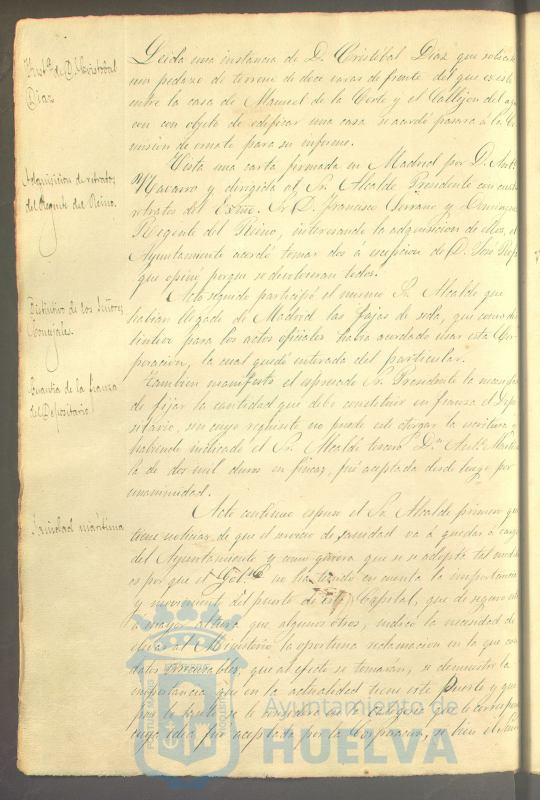 Inst.ª de D. Cristobal
Diaz
Leida una instancia de D. Cristóbal Diaz que solicita
un pedazo de terreno de doce varas de frente del que existe
entre la casa de Manuel de la Corte y el Callejon del
con con objeto de edificar una casa se acordó pasara á la Co
mision de ornato para su informe.
Adquisicion de retratos
del Regente del Reino.
Vista una carta firmada en Madrid por D. Ant.º
Navarro y dirigida al Sr. Alcalde Presidente con cuatro
retratos del Exmo. Sr. D. Francisco Serrano y Dominguez
Regente del Reino, interesando la adquisicion de ellos, el
Ayuntamiento acordó tomar dos á escepcion de D. José
que opinó porque se devolvieran todos.
Distintivo de los Señores
Concejales.
Acto seguido participó el mismo Sr. Alcalde que
habian llegado de Madrid las fajas de seda, que como dis
tintivo para los actos oficiales habia acordado usar esta Cor
poracion, la cual quedó enterada del particular.
Cuantia de la fianza
del Depositario
Tambien manifestó el espresado Sr. Presidente la
de fijar la cantidad que debe constituir en fianza el Depo
sitario, sin cuyo requisito no puede este otorgar la escritura y
habiendo indicado el Sr. Alcalde tercero D.n Ant.º
la de dos mil duros en fincas, fué aceptada desde luego por
unanimidad.
Sanidad marítima
Acto continuo espuso el Sr. Alcalde primero que
tiene noticias de que el servicio de sanidad vá á quedar á cargo
del Ayuntamiento y como quiera que si se adopta tal medida
es por que el Gob.no no ha tenido en cuenta la importancia
y movimiento del puerto de esta Capital, que de seguro está
á mayor altura que algunos otros, indicó la necesidad de
elevar al Ministerio la oportuna reclamacion en la que con
datos irrecusables, que al efecto se tomarán, se demuestre la
importancia que en la actualidad tiene este Puerto y que
por lo tanto se le considere en la categoria que le corresponde
cuya idea fué aceptada por la Corporacion, si bien el Señor
Ayuntamiento de
HUELVA